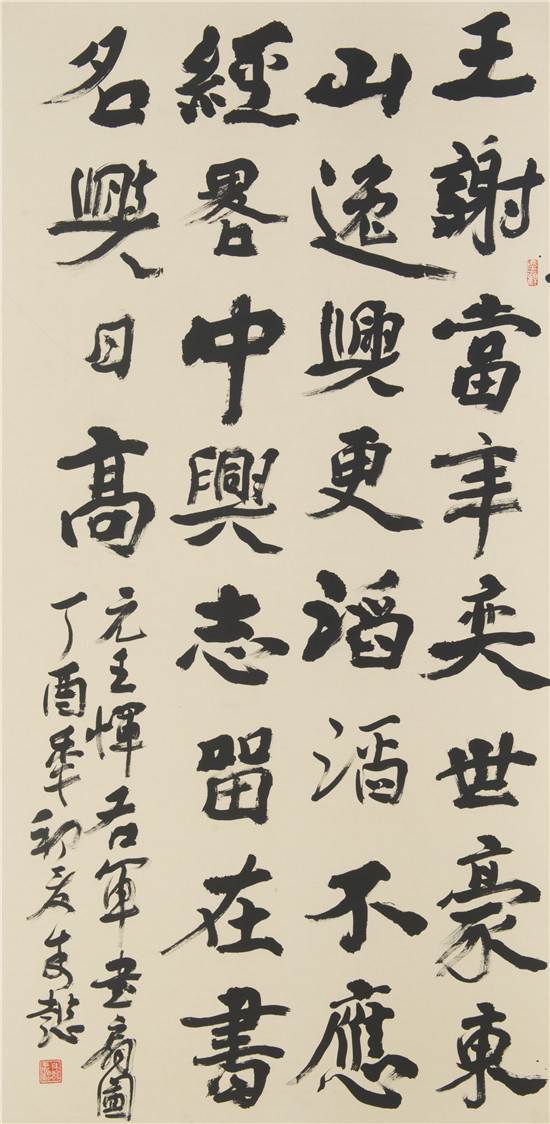 王謝當年奕世豪東
山逸興更滔滔不應
經畧中興志留在書
名與日高
元王惲右軍書扇圖
丁酉年初夏